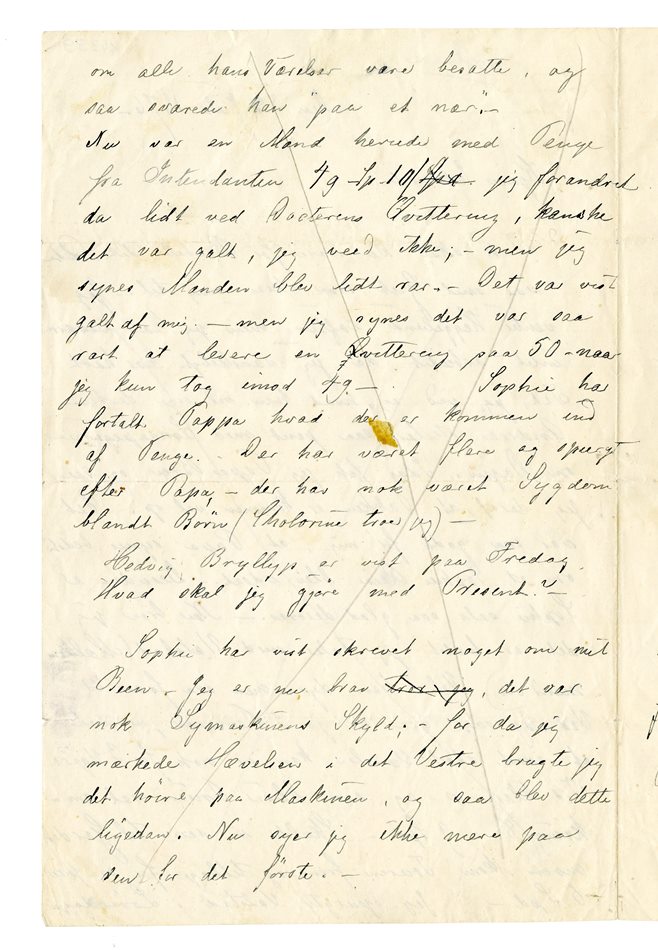 om alle hans Værelser vare besatte, og
saa svarede han "paa et nær".-
Nu var en Mand herude med Penge
fra Intendanten 49 Sp. 10/ jeg forandret
da lidt ved Docterens Qvittering, kanske
det var galt, jeg veed ikke; - men jeg
synes Manden blev lidt rar. - Det var vist
galt af mig. - men jeg synes det var saa
rart at levere en Qvittering paa 50 - naar
jeg kun tog imod 49. - Sophie har
fortalt Pappa hvad der er kommen ind
af Penge. Der har været flere og spurgt
efter Papa, - der har nok været Sygdom
blandt Børn (Cholorine troer jeg) -
Hedvig Bryllyp er vist paa Fredag.
Hvad skal jeg gjøre med Present? -
Sophie har vist skrevet noget om mit
Been. - Jeg er nu brav troer jeg, det var
nok Symaskinens Skyld; - for da jeg
mærkede Hævelsen i det Vestre brugte jeg
det höire paa Maskinen, og saa blev dette
ligedan. Nu syer jeg ikke mere paa
den for det förste. -